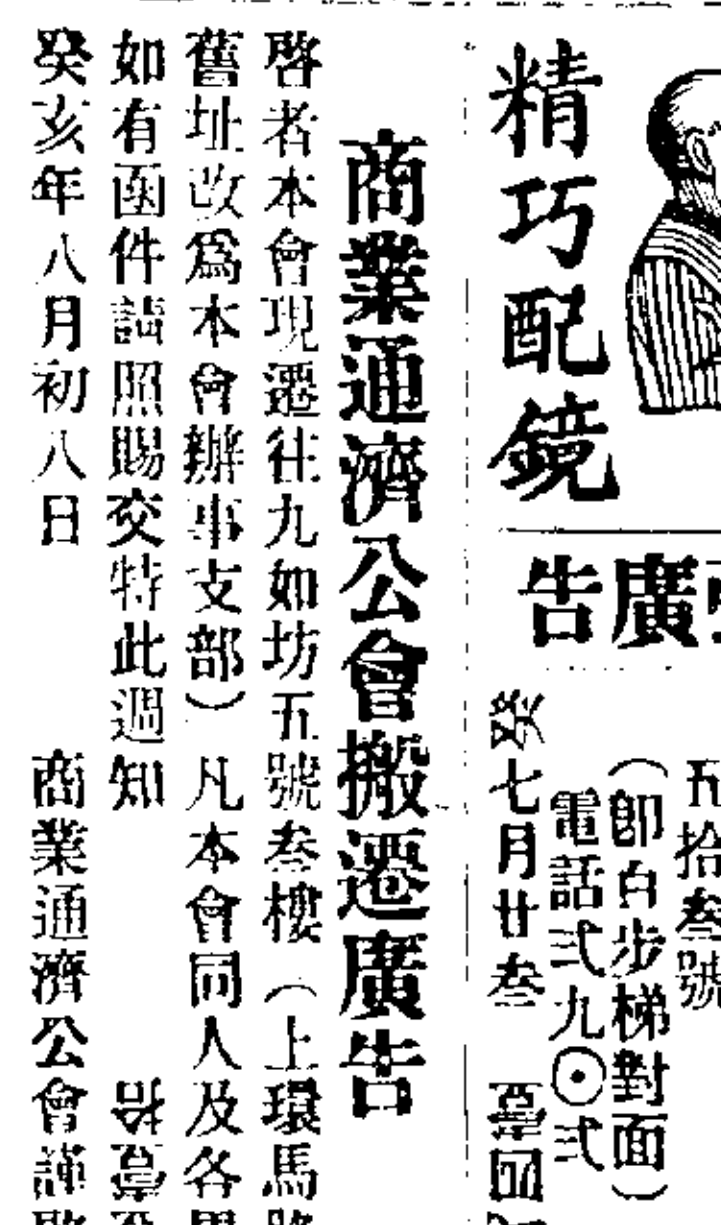 精巧配鏡
廣告
五拾叁號
（卽百步梯對面）
電話弍九⊙弍
癸七月廿叁
商業通濟公會搬遷廣告
啓者本會現遷往九如坊五號叁樓（上環馬路
舊址改爲本會辦事支部）凡本會同人及各界
如有函件請照賜交特此週知
癸亥年八月初八日
商業通濟公會謹啟